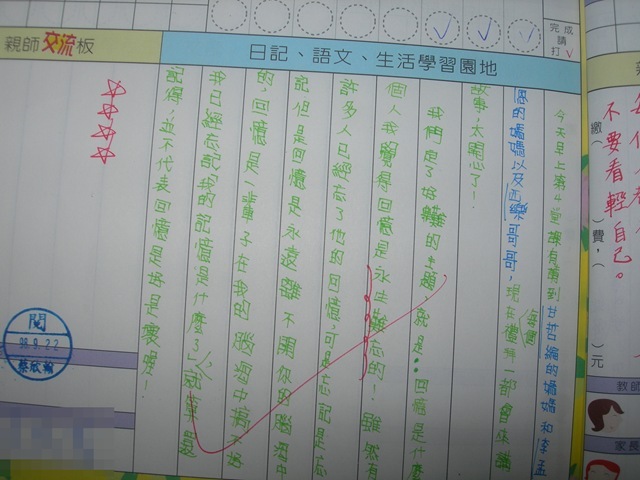 完成
請
打✓
親師交流板
日記、語文、生活學習園地
今天早上第4
到甘哲綸的媽媽和李孟
恩的媽媽以及西樂哥哥,現在禮拜一都會來講
每個
故事,太開心了!
我們定了好難的主題,就是:回憶是什麼
個人我覺得回憶是永生難忘的!雖然有
許多人已經忘了他的回憶,可是忘記是忘
記但是回憶是永遠離不開你的腦海中
的,回憶是一輩子在我的腦海中揮不
我已經忘記我的記憶是什麼了,就算還
記得,並不代表回憶是好是壞喔!
閱
98.9.22
蔡欣翰
不要看輕自己。
繳( )費,( )元
教師
家長